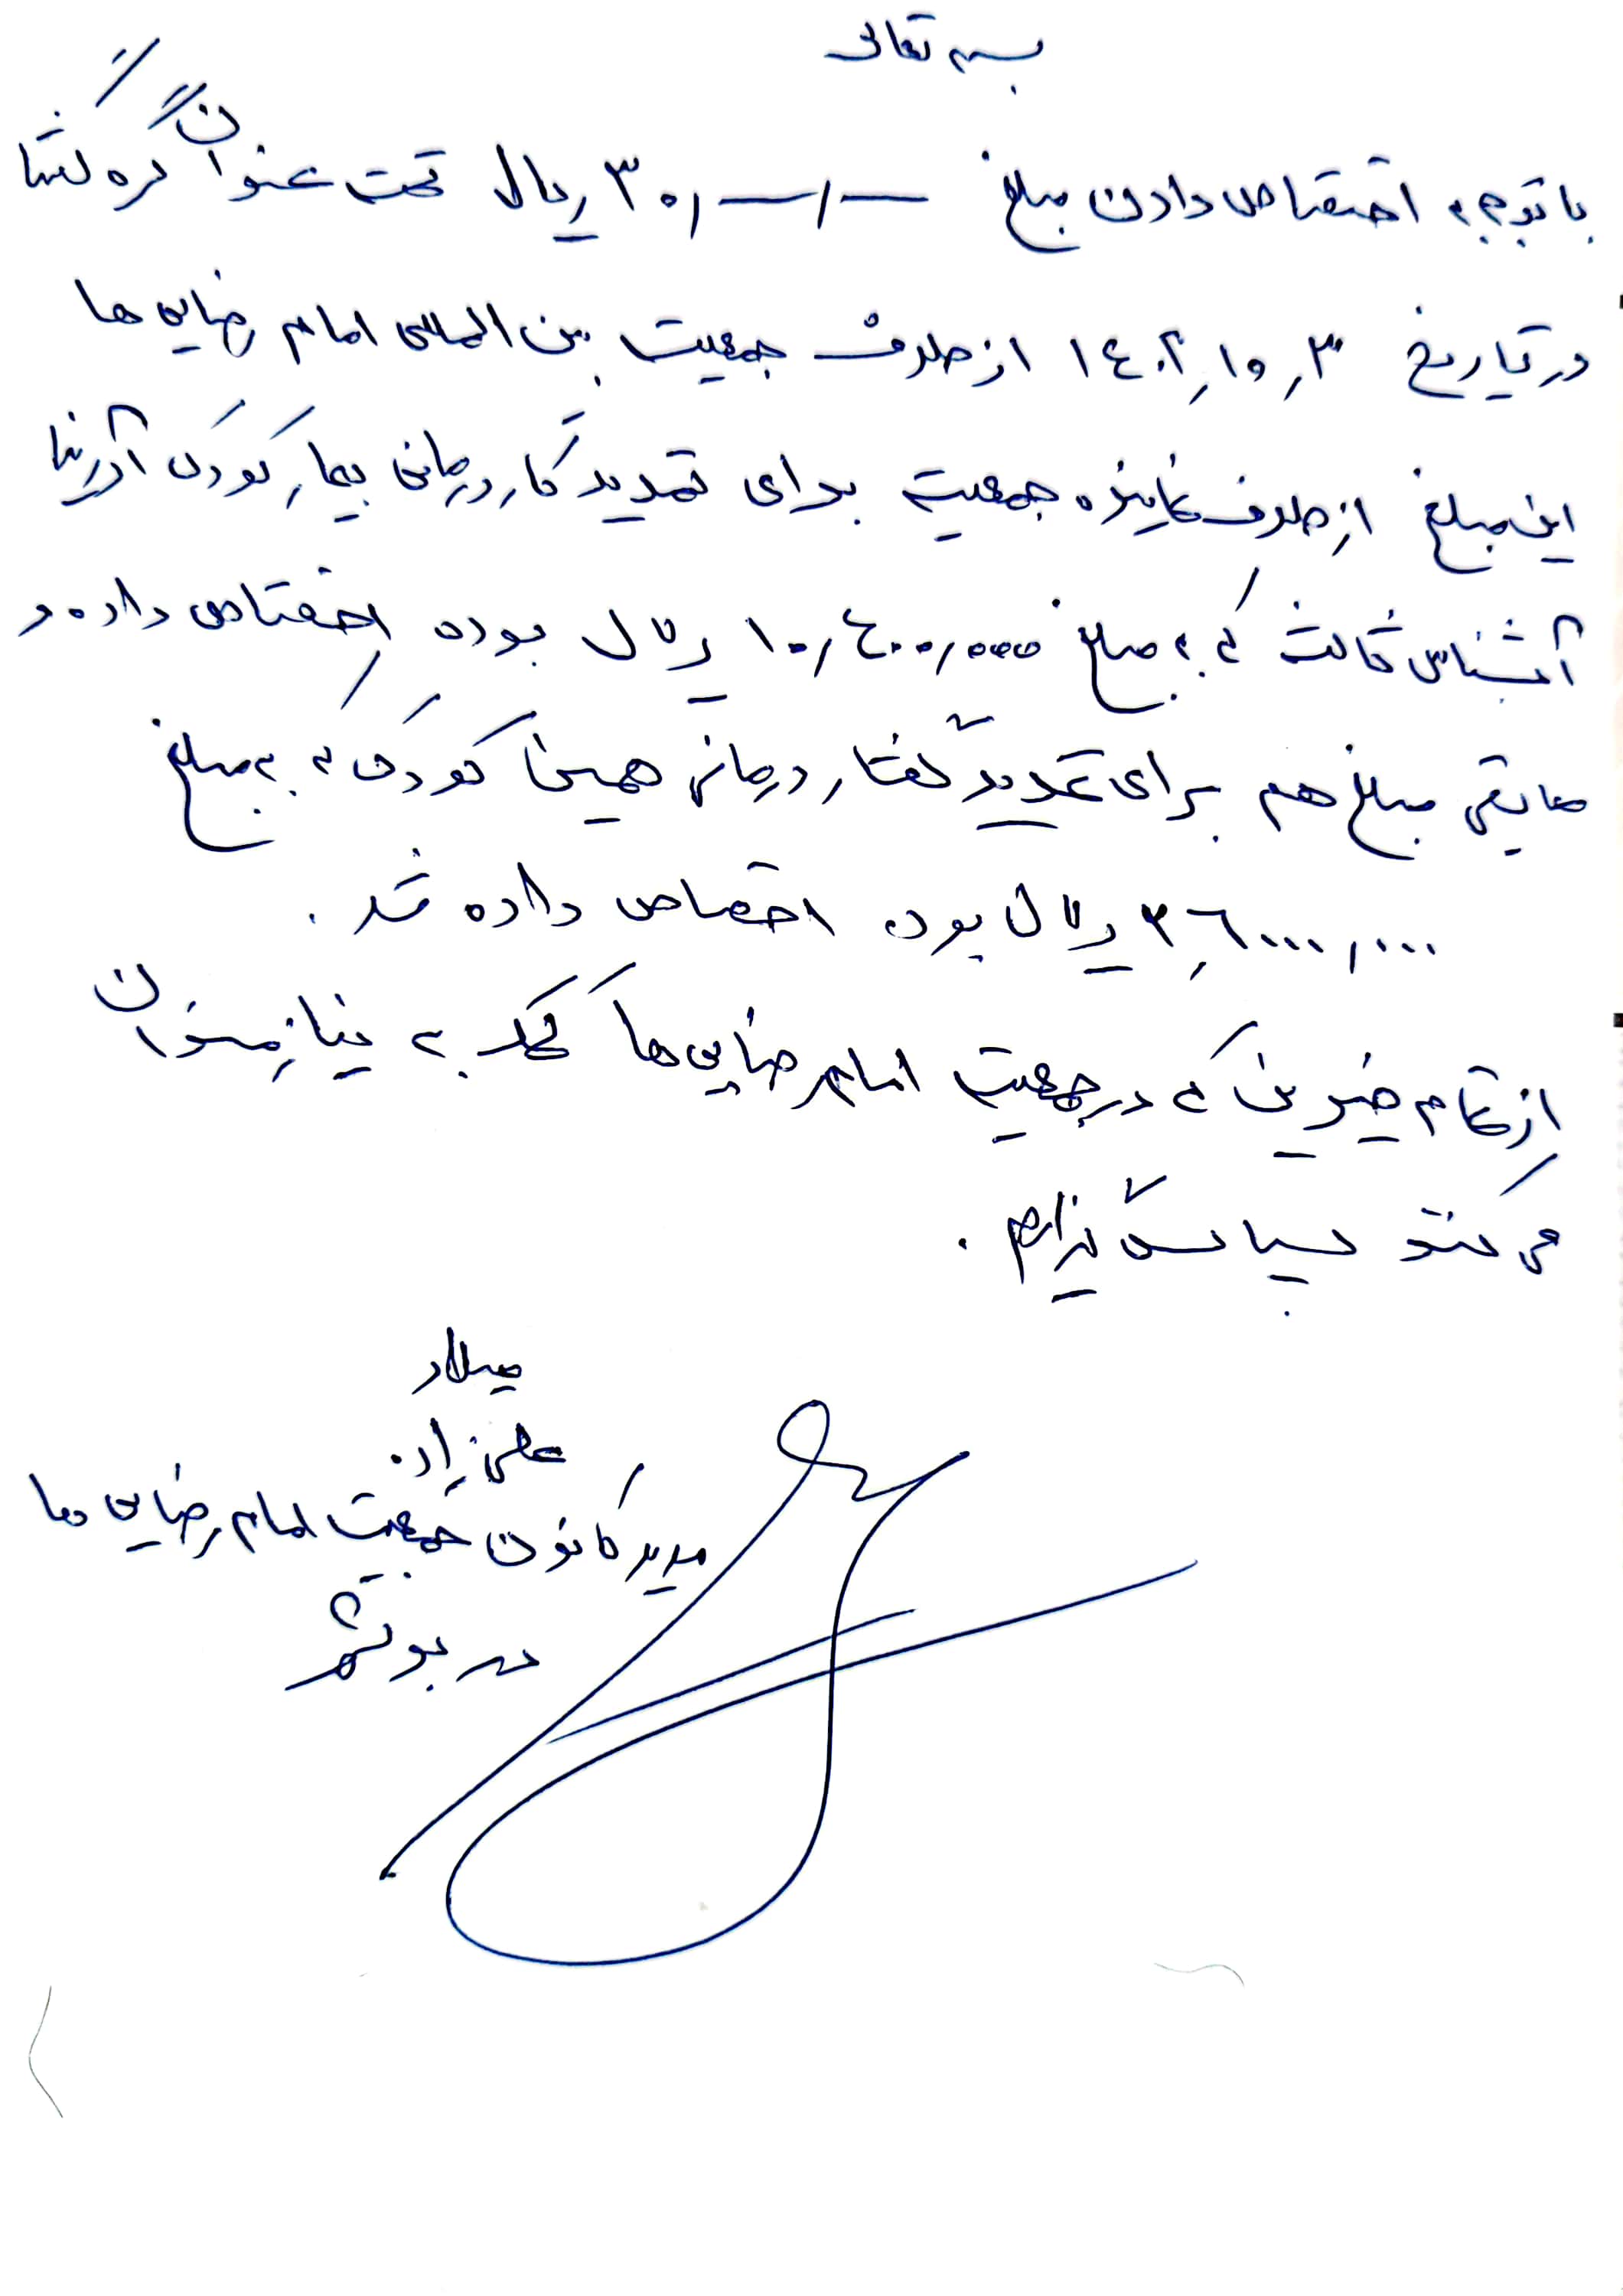 بسمه تعالی
باتوجه به اختصاص دادن مبلغ ۳۰٫—٫— ریال تحت عنوان گره گشا
در تاریخ ۱۴۰۲٫۱۰٫۳ از طرف جمعیت بین المللی امام رضایی ها
این مبلغ از طرف نماینده جمعیت برای تمدید کار درمانی بیمار کودک آدرینا
که به مبلغ ۱۰٫۴۰۰٫۰۰۰ ریال بوده اختصاص داده و
مابقی مبلغ هم برای تمدید گفتار درمانی همین کودک که به مبلغ
ریال بوده اختصاص داده شد.
از تمام خیرین که در جمعیت امام رضایی ها کمک به نیازمندان
می کنند سپاس گزارم.
میلاد
علی زاده
مدیر کانون جمعیت امام رضایی ها
در بوشهر